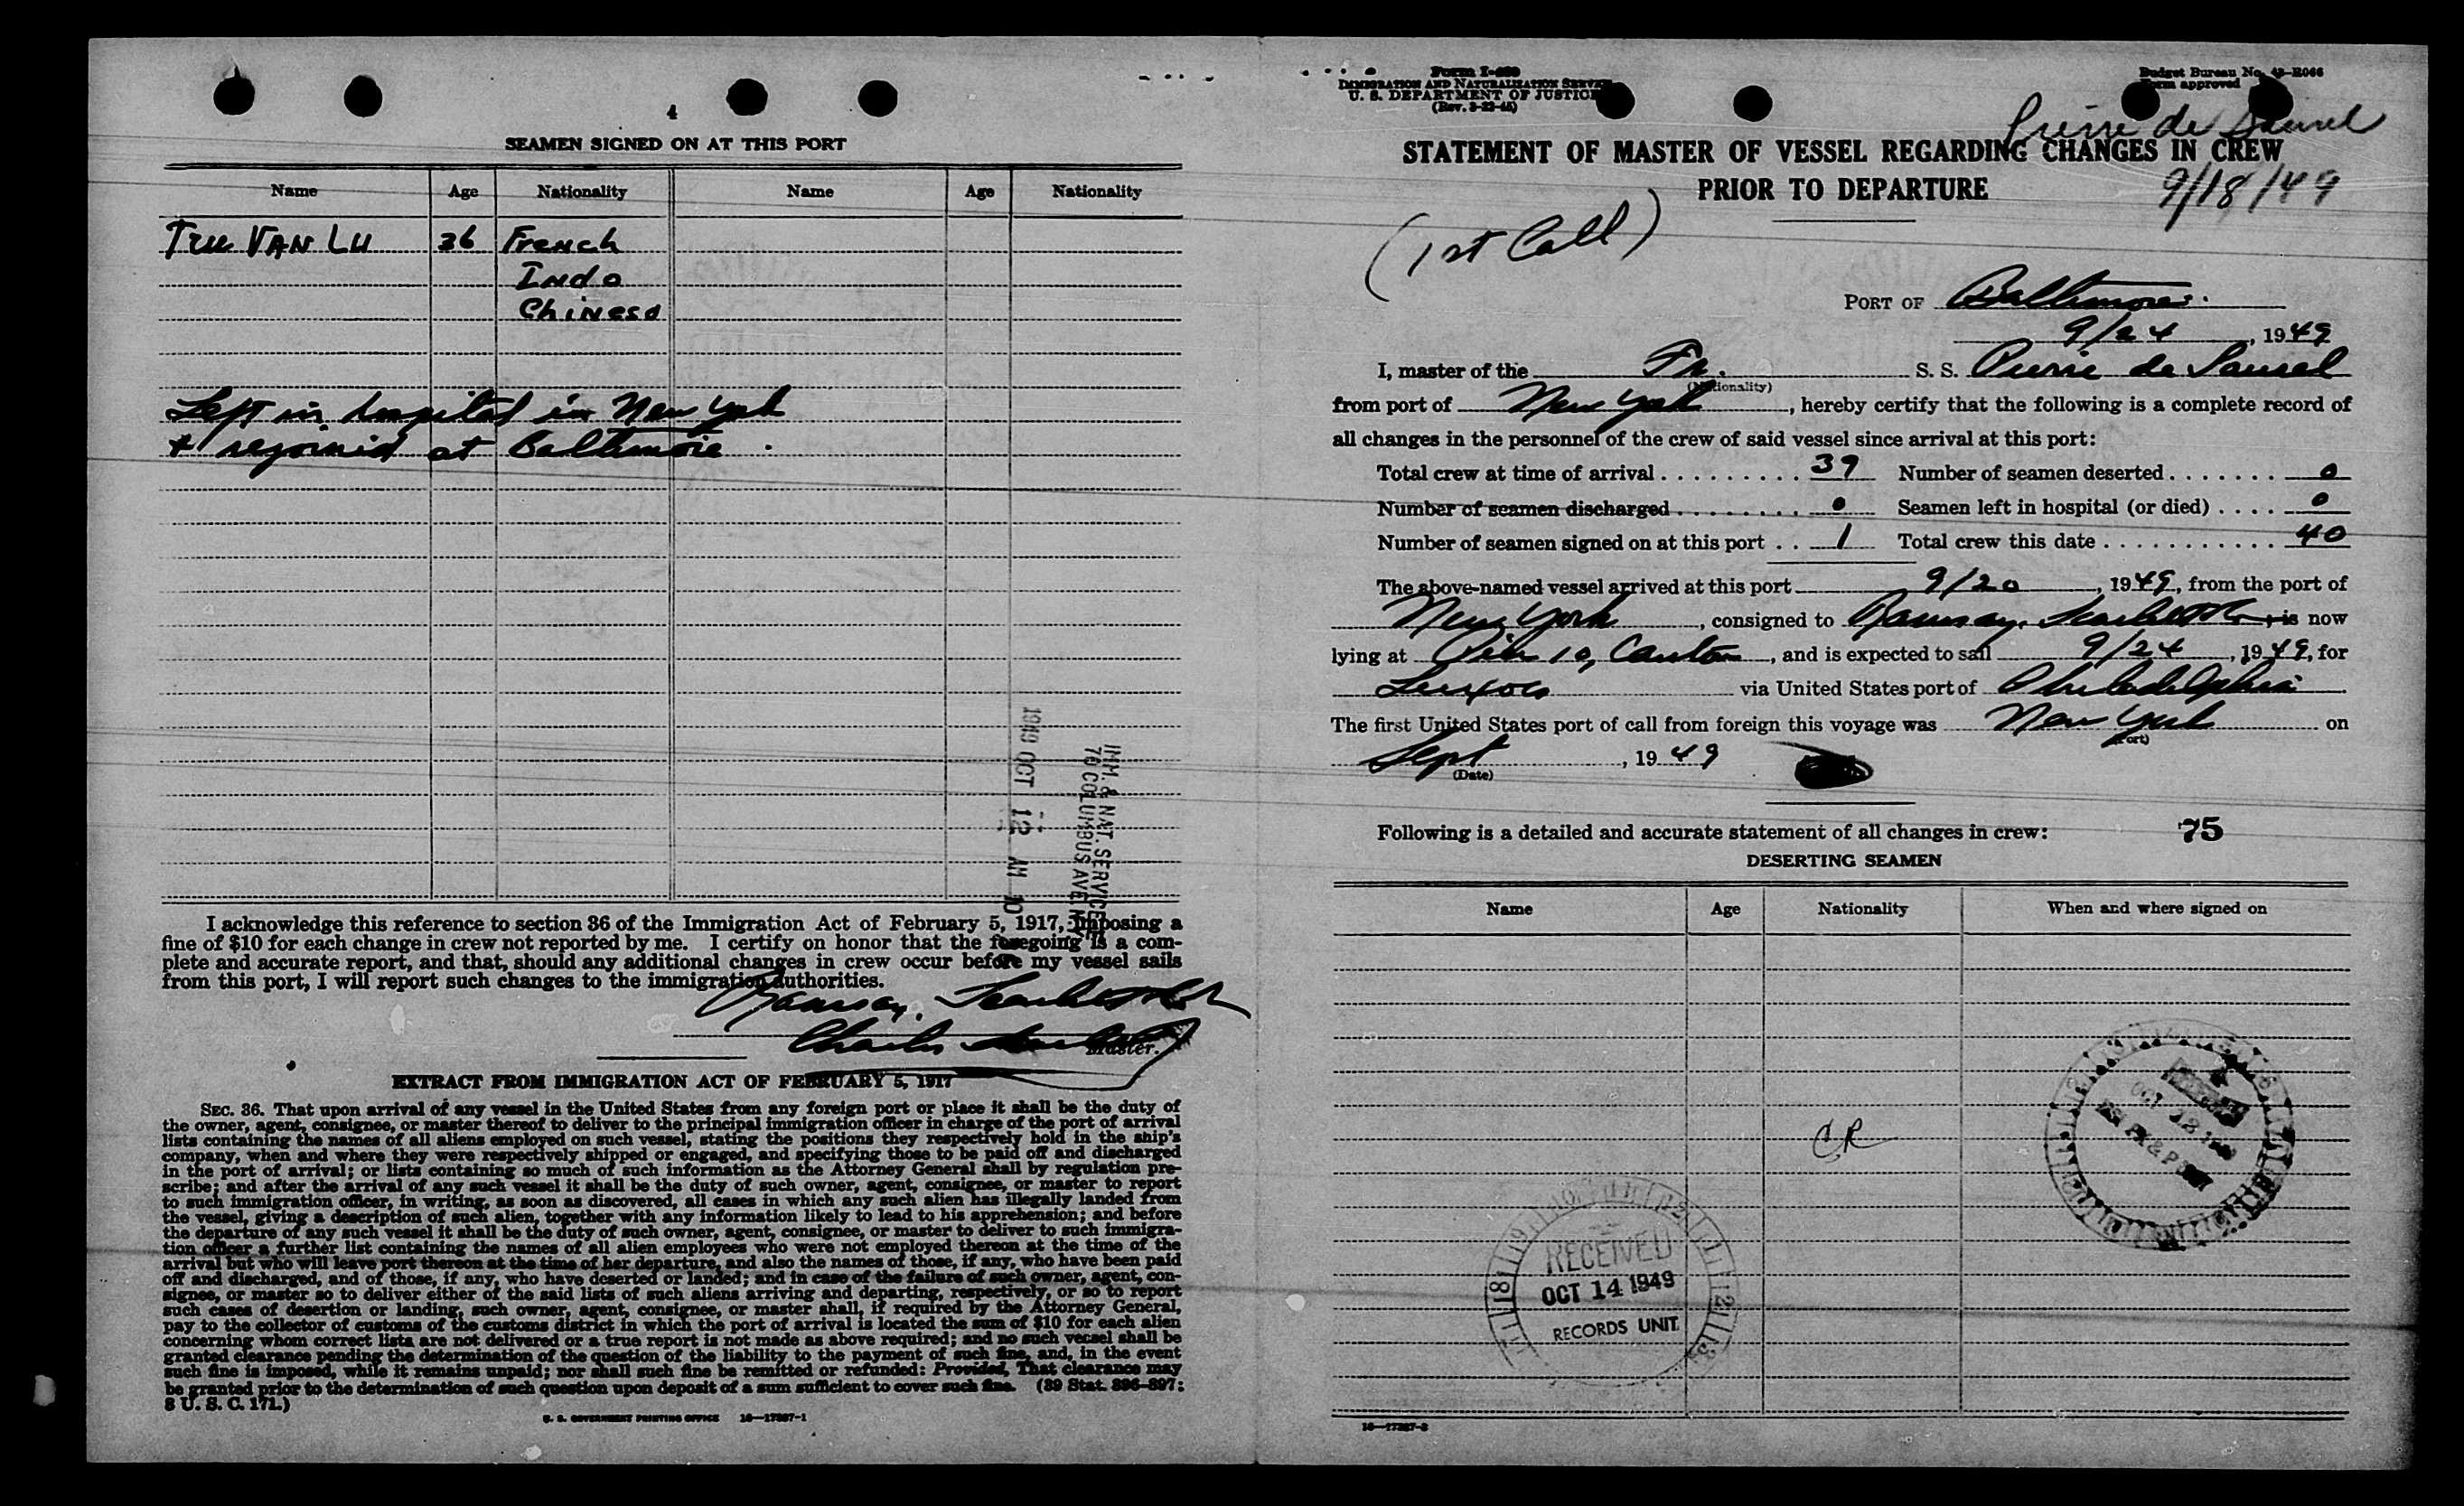 4
SEAMEN SIGNED ON AT THIS PORT
Name Age Nationality Name Age Nationality
TRU VAN LU 36 French
Indo
Chinese
Left in hospital in New York
& rejoined at Baltimore.
1949 OCT 12 AM 10
IMM. & NAT. SERVICE
70 COLUMBUS AVE.
I acknowledge this reference to section 36 of the Immigration Act of February 5, 1917, imposing a
fine of $10 for each change in crew not reported by me. I certify on honor that the foregoing is a com-
plete and accurate report, and that, should any additional changes in crew occur before my vessel sails
from this port, I will report such changes to the immigration authorities.
Ramsay, Scarlett & Co
Charles
Master.
EXTRACT FROM IMMIGRATION ACT OF FEBRUARY 5, 1917
SEC. 36. That upon arrival of any vessel in the United States from any foreign port or place it shall be the duty of
the owner, agent, consignee, or master thereof to deliver to the principal immigration officer in charge of the port of arrival
lists containing the names of all aliens employed on such vessel, stating the positions they respectively hold in the ship's
company, when and where they were respectively shipped or engaged, and specifying those to be paid off and discharged
in the port of arrival; or lists containing so much of such information as the Attorney General shall by regulation pre-
scribe; and after the arrival of any such vessel it shall be the duty of such owner, agent, consignee, or master to report
to such immigration officer, in writing, as soon as discovered, all cases in which any such alien has illegally landed from
the vessel, giving a description of such alien, together with any information likely to lead to his apprehension; and before
the departure of any such vessel it shall be the duty of such owner, agent, consignee, or master to deliver to such immigra-
tion officer a further list containing the names of all alien employees who were not employed thereon at the time of the
arrival but who will leave port thereon at the time of her departure, and also the names of those, if any, who have been paid
off and discharged, and of those, if any, who have deserted or landed; and in case of the failure of such owner, agent, con-
signee, or master so to deliver either of the said lists of such aliens arriving and departing, respectively, or so to report
such cases of desertion or landing, such owner, agent, consignee, or master shall, if required by the Attorney General,
pay to the collector of customs of the customs district in which the port of arrival is located the sum of $10 for each alien
concerning whom correct lists are not delivered or a true report is not made as above required; and no such vessel shall be
granted clearance pending the determination of the question of the liability to the payment of such fine, and, in the event
such fine is imposed, while it remains unpaid; nor shall such fine be remitted or refunded: Provided, That clearance may
be granted prior to the determination of such question upon deposit of a sum sufficient to cover such fine. (39 Stat. 896-897;
8 U. S. C. 171.)
U. S. GOVERNMENT PRINTING OFFICE 16—17387-1
IMMIGRATION AND NATURALIZATION SERVICE
U. S. DEPARTMENT OF JUSTICE
(Rev. 3-22-45)
Budget Bureau No. 43-R066
Form approved
Pierre de Saurel
STATEMENT OF MASTER OF VESSEL REGARDING CHANGES IN CREW
PRIOR TO DEPARTURE
9/18/49
(1st Call)
PORT OF Baltimore.
9/24, 1949
I, master of the Fr. S. S. Pierre de Saurel
(Nationality)
from port of New York, hereby certify that the following is a complete record of
all changes in the personnel of the crew of said vessel since arrival at this port:
Total crew at time of arrival 39 Number of seamen deserted 0
Number of seamen discharged 0 Seamen left in hospital (or died) 0
Number of seamen signed on at this port 1 Total crew this date 40
The above-named vessel arrived at this port 9/20, 1949, from the port of
New York, consigned to Ramsay, Scarlett & Co, is now
lying at Pier 10, Canton, and is expected to sail 9/24, 1949, for
via United States port of Philadelphia
The first United States port of call from foreign this voyage was New York on
(Port)
Sept, 1949
(Date)
Following is a detailed and accurate statement of all changes in crew: 75
DESERTING SEAMEN
Name Age Nationality When and where signed on
CR
RECEIVED
OCT 14 1949
RECORDS UNIT
16—17387-2